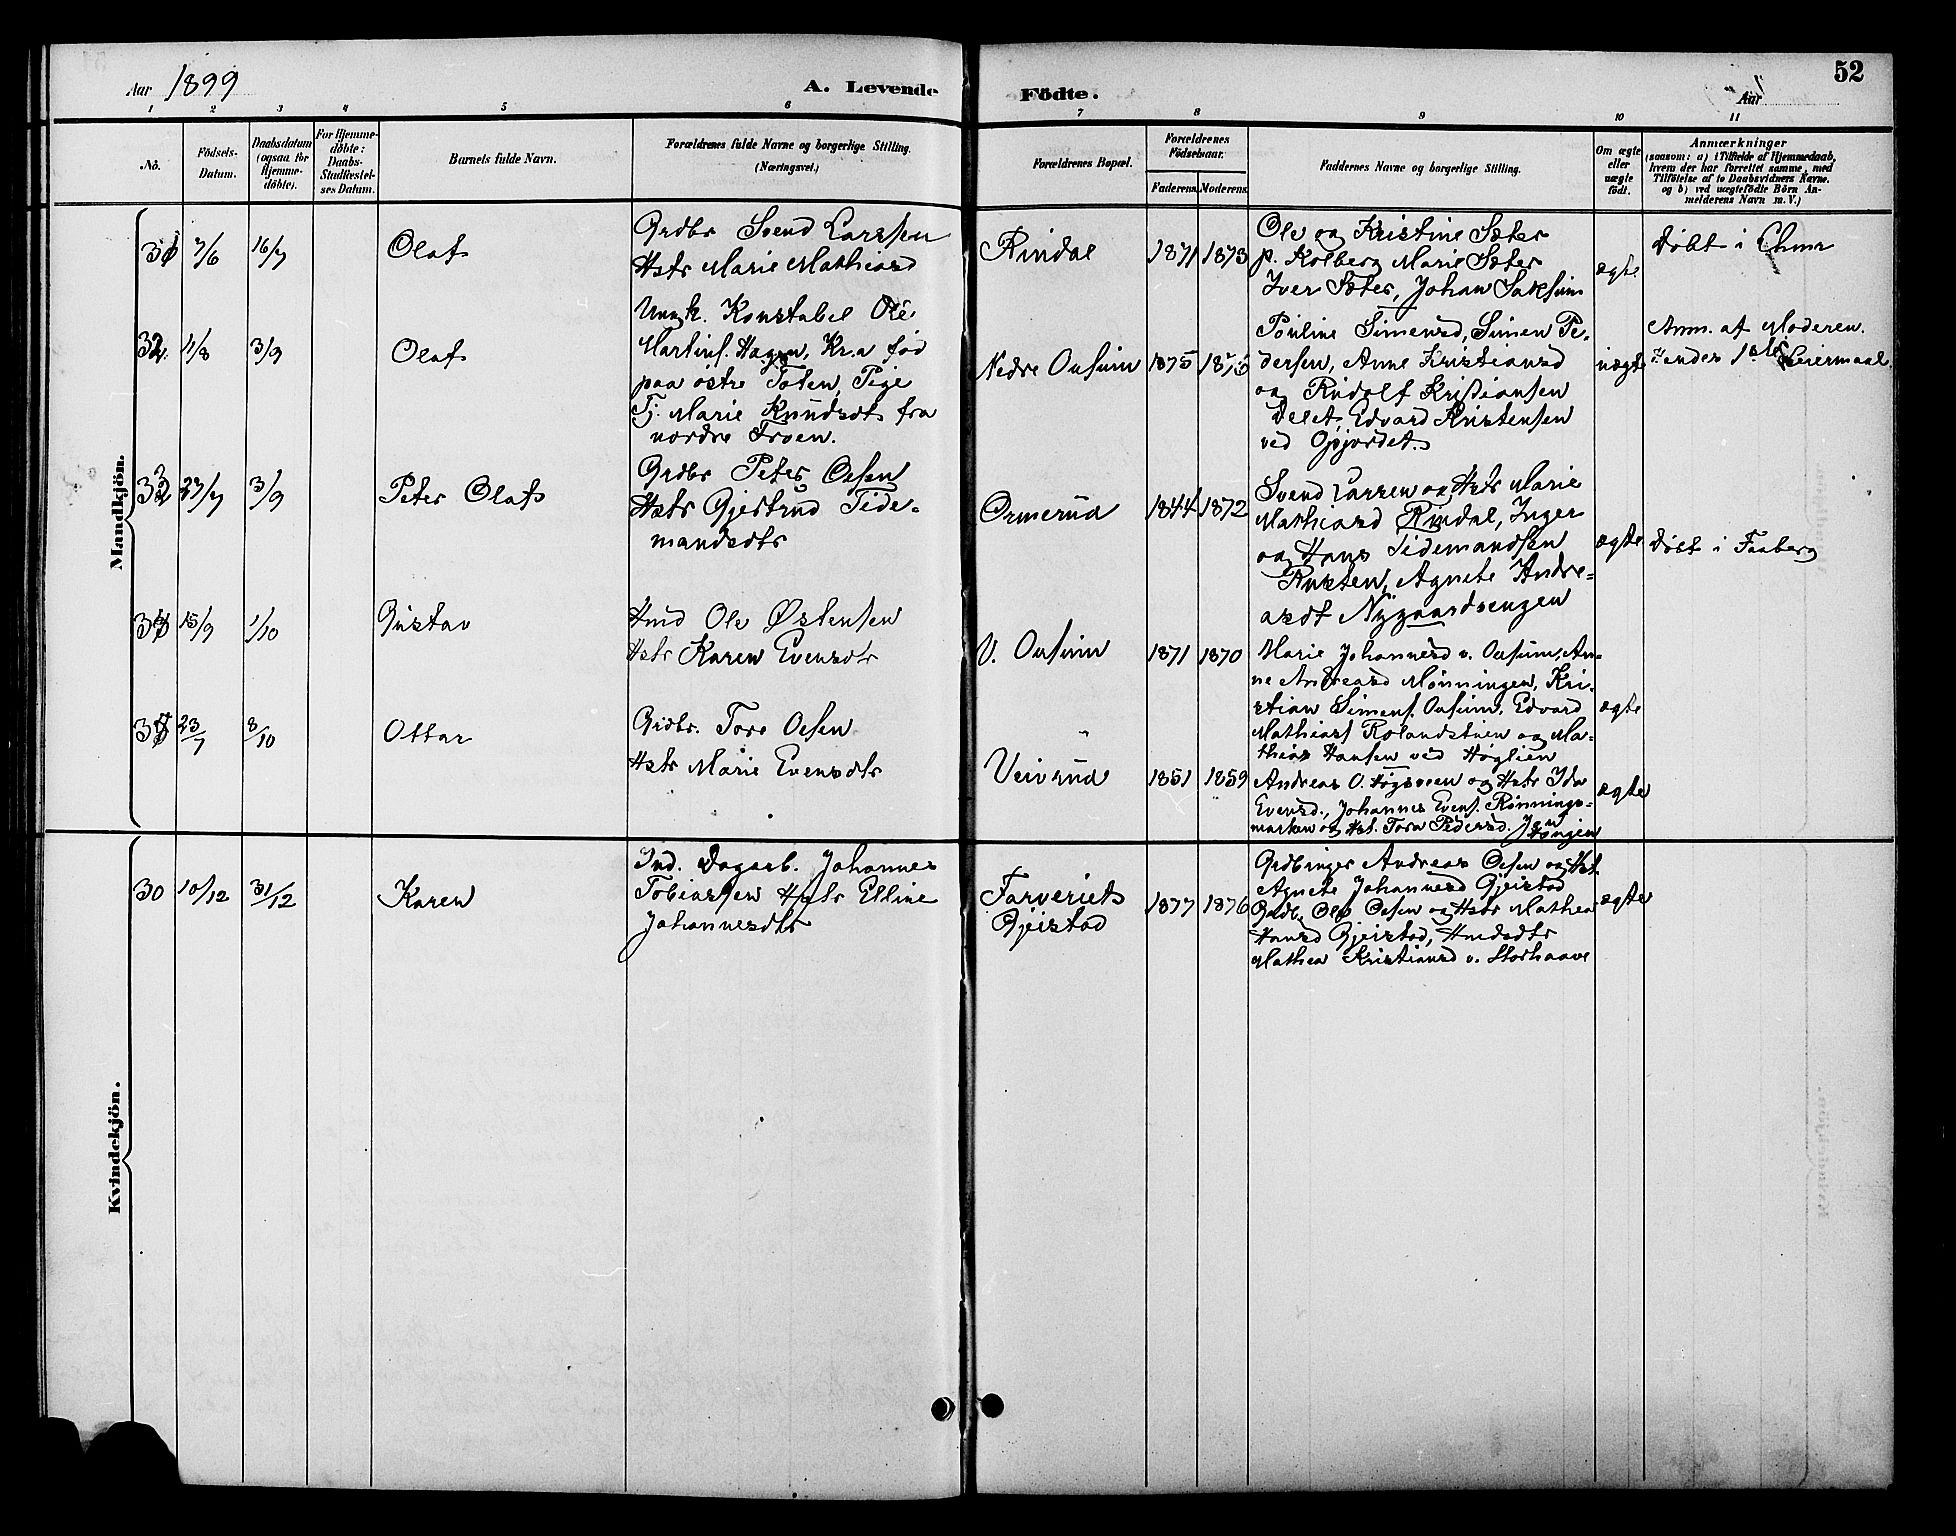 Aar 1899
A. Levende
Födte.
Aar
52
1 2 3 4 5 6 7 8 9 10 11
No.
Födsels-
Datum.
Daabsdatum
(ogsaa for
Hjemme-
döbte).
For Hjemme-
döbte:
Daabs-
Stadfæstel-
ses Datum.
Barnets fulde Navn.
Forældrenes fulde Navne og borgerlige Stilling.
(Næringsvei.)
Forældrenes Bopæl.
Forældrenes
Födselsaar.
Faderens.
Moderens.
Faddernes Navne og borgerlige Stilling.
Om ægte
eller
uægte
födt.
Anmærkninger
(saasom: a) i Tilfælde af Hjemmedaab,
hvem der har forrettet samme, med
Tilföielse af to Daabsvidners Navne.
og b) ved uægtefödte Börn An-
melderens Navn m. V.)
Mandkjön.
31 7/6 16/7
Olaf
Grdbr Svend Larssen
Hstr Marie Mathiasd
Rindal
1871 1873
Ole og Kristine Sæter
p. Kolberg Marie Sæter
Iver Sæter, Johan Saksum
ægte
Döbt i
32 11/8 3/9
Olaf
Unnk. Konstabel Ole
Martins. Hagen, Kr.a fød
paa östre Toten, Pige
Tj. Marie Knudsdtr fra
nordre Troen.
Nedre Onsum
1875
Pauline Simensd, Simen Pe-
dersen, Anne Kristiansd
og Rudolf Kristiansen
Delet, Edvard Kristensen
ved Gjördet.
uægte
Anm. af Moderen.
Hendes 1ste Leiermaal.
33 23/7 3/9
Peter Olaf
Grdbr Peter Olsen
Hstr Gjertrud Tide-
mandsdtr
Ormerud
1844 1872
Svend Larsen og Hstr Marie
Mathiasd Rindal, Inger
og Hans Tidemandsen
Rusten, Agnete Andre-
asdt Nygaardsengen
ægte
Döbt i Faaberg
34 15/9 1/10
Gustav
Hmd Ole Østensen
Hstr Karen Evensdtr
V. Onsum
1871 1870
Marie Johannesd v. Onsum, An-
ne Andreasd Mønningen, Kri-
stian Simens. Onsum, Edvard
Mathias Rolandstuen og Ma-
thias Hansen ved Høglien
ægte
35 23/7 8/10
Ottar
Grdbr. Tore Olsen
Hstr Marie Evensdtr
Veiverud
1851 1859
Andreas O. Høgsveen og Hstr Ida
Evensd., Johannes Evens. Rønnings-
marken og Hst. Tora Pedersd.
ægte
Kvindekjön.
30 10/12 31/12
Karen
Ind. Dagarb. Johannes
Tobiassen Hstr Elline
Johannesdtr
Farveriet
Gjeistad
1877 1876
Grdbruger Andreas Olsen og Hst.
Agnete Johannesd Gjeistad
Grdbr Ole Olsen og Hstr Mathea
Hansd Gjeistad, Hmdsdtr
Mathea Kristiansd v. Storhaave
ægte